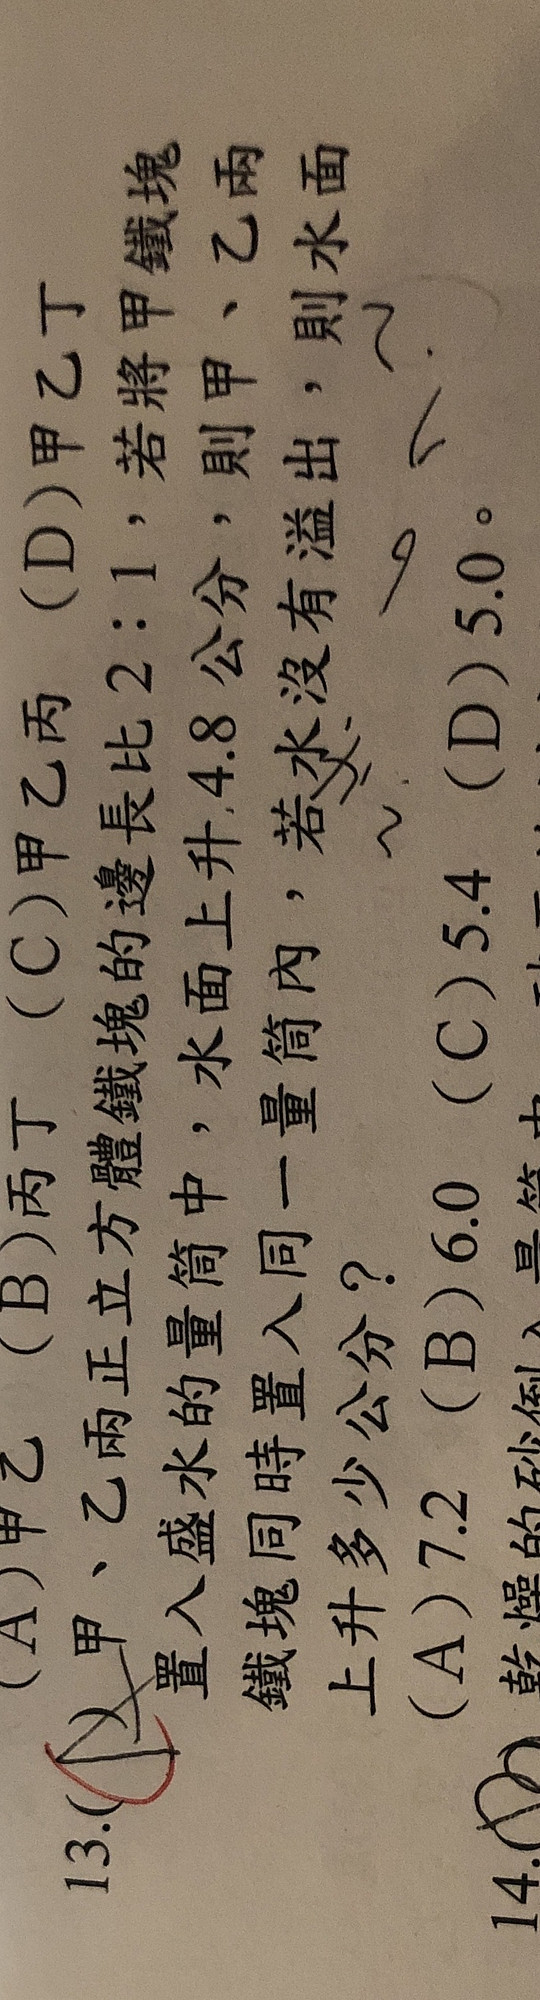 (A)甲乙 (B)丙丁 (C)甲乙丙 (D)甲乙丁
13.( )甲、乙兩正立方體鐵塊的邊長比2:1,若將甲鐵塊
置入盛水的量筒中,水面上升4.8公分,則甲、乙兩
鐵塊同時置入同一量筒內,若水沒有溢出,則水面
上升多少公分?
(A)7.2 (B)6.0 (C)5.4 (D)5.0。
14.( )乾燥的砂倒入量筒中,